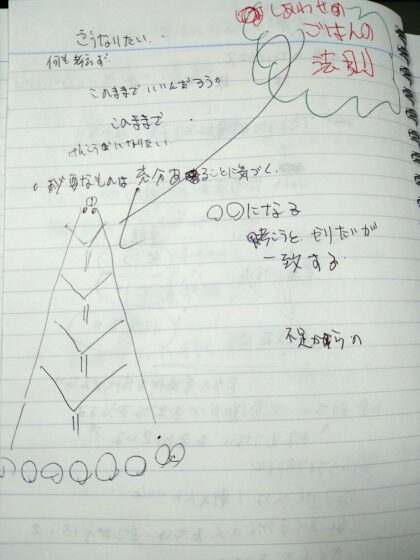 しあわせの
ごはんの
法則
こうなりたい・・
何も考えず
このままでいいんだろうか
このままで
けんこうになりたい
必要なものは充分あることに気づく。
〇〇になる
と、やりたいが
一致する
不足からの